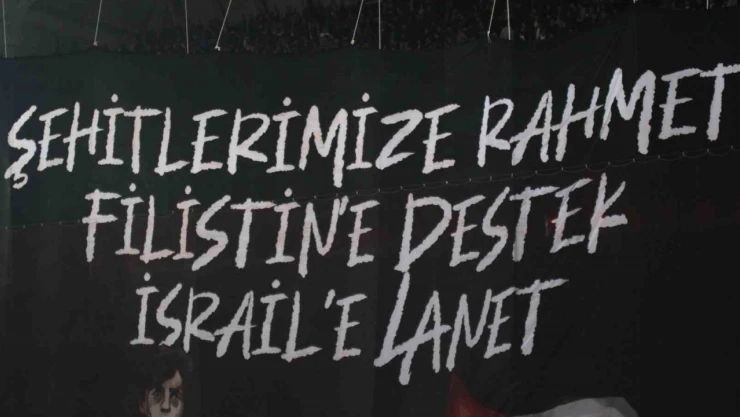 ŞEHİTLERİMİZE RAHMET
FİLİSTİN'E DESTEK
İSRAİL'E LANET